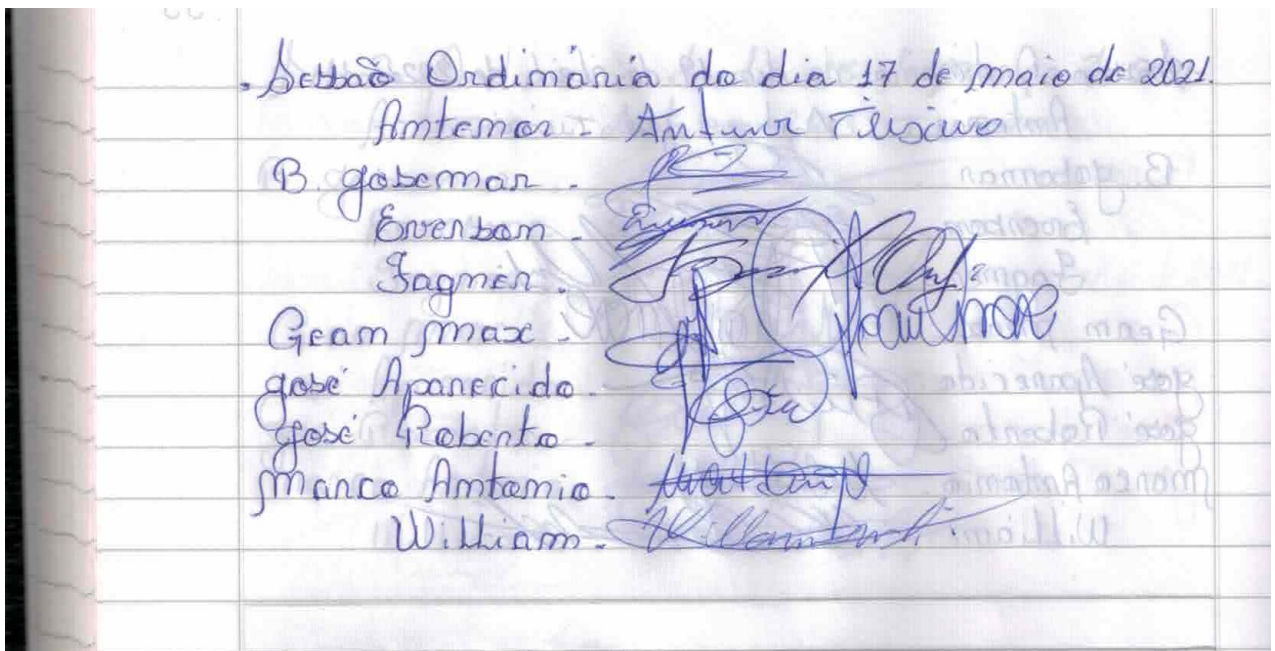 . Sessão Ordinária do dia 17 de maio de 2021.
Antenor - Antenor Teixeira
B. Josemar -
Everson -
Fagner -
Gean Max - Gean Max
José Aparecido -
José Roberto -
Marco Antonio -
William -